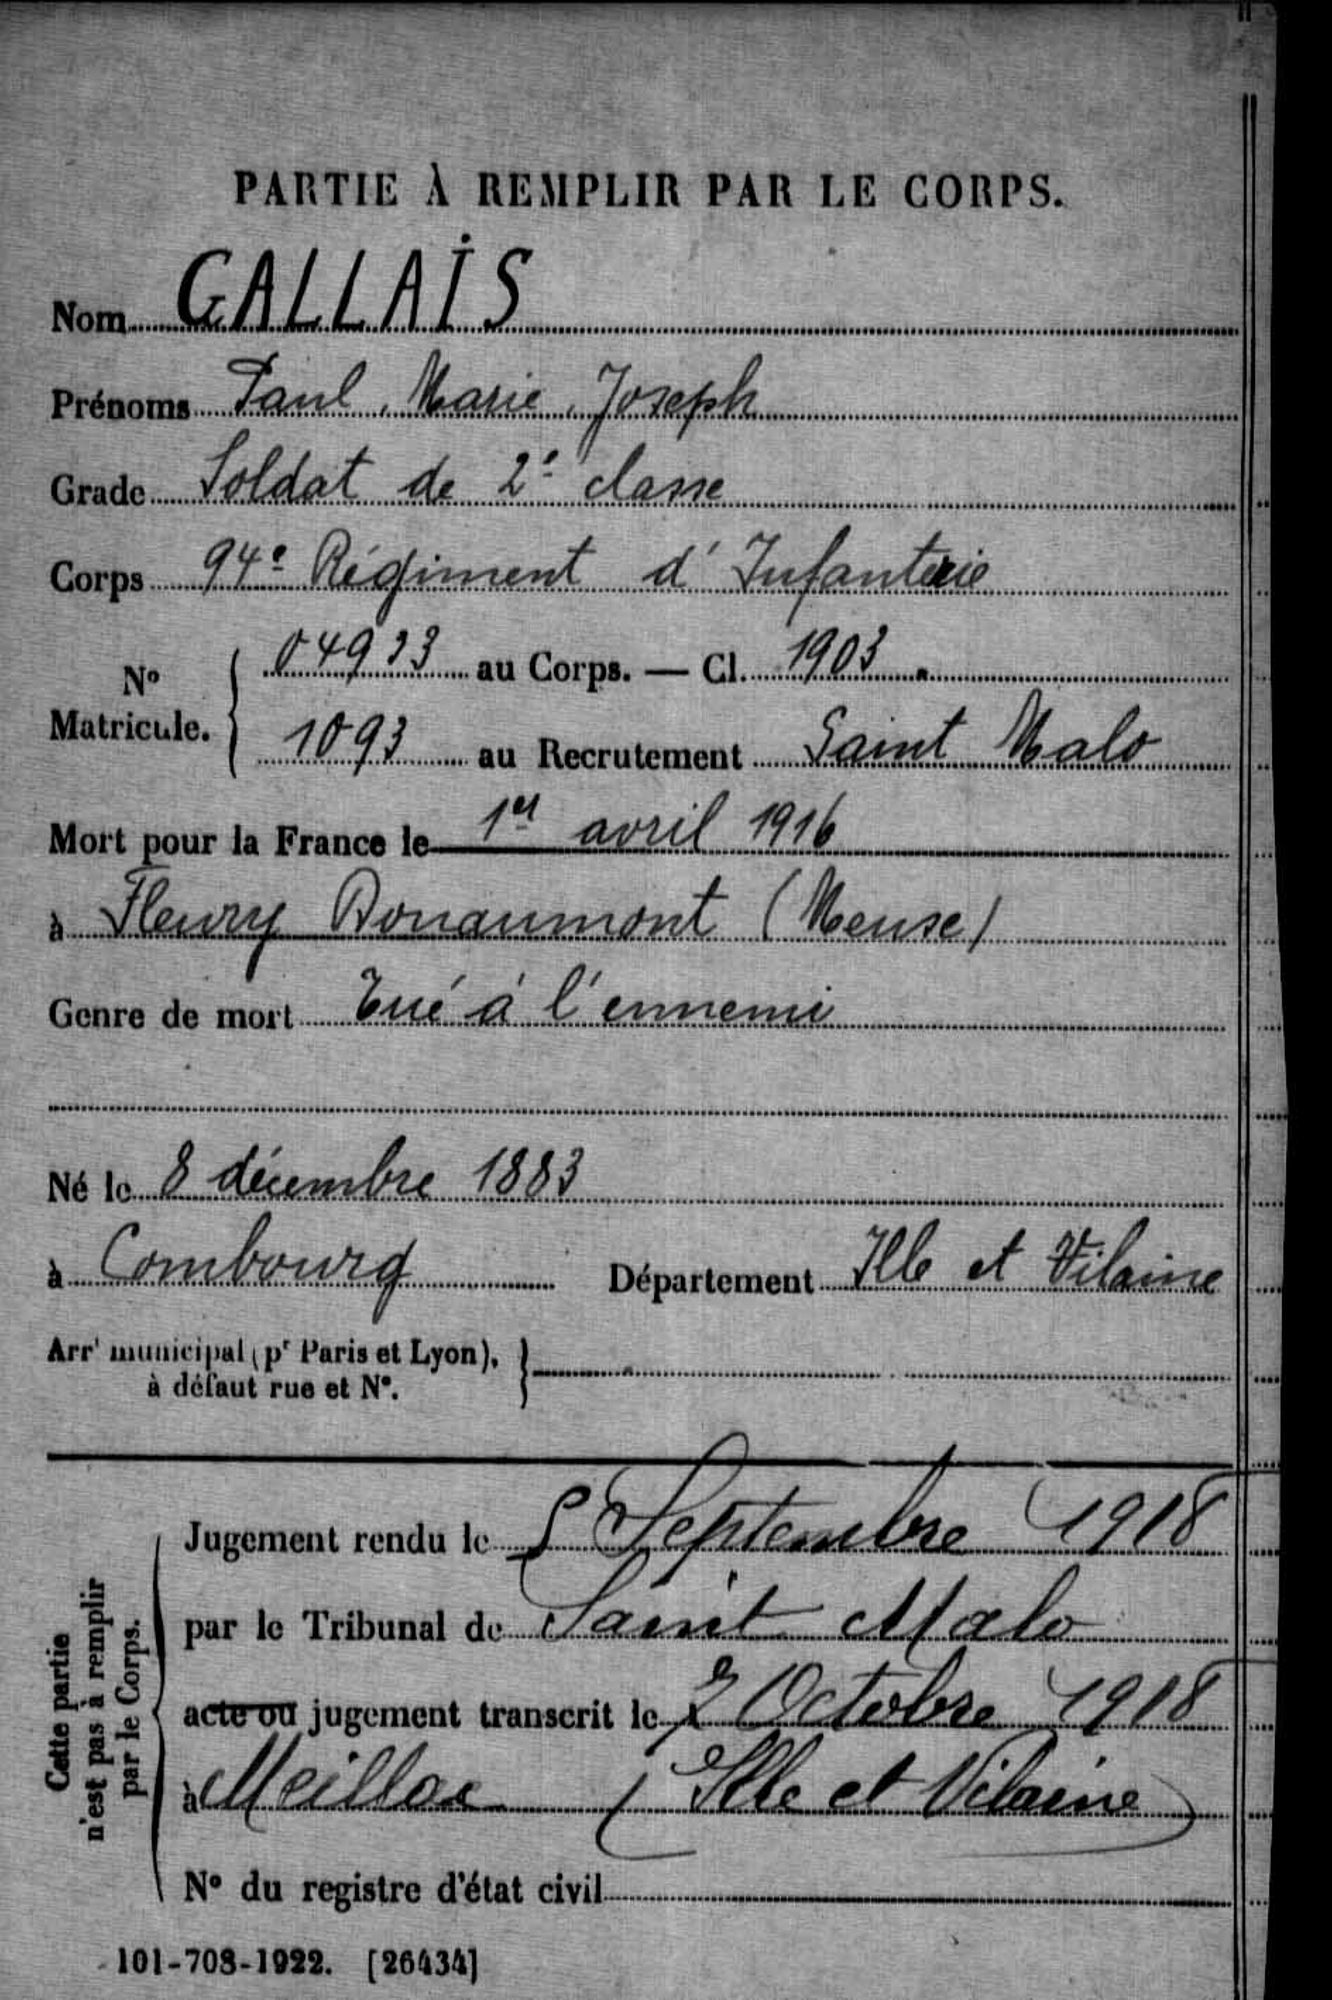 PARTIE À REMPLIR PAR LE CORPS.
Nom GALLAIS
Prénoms Paul, Marie, Joseph
Grade Soldat de 2e classe
Corps 94e Régiment d'Infanterie
No Matricule. 04933 au Corps. — Cl. 1903
1093 au Recrutement Saint Malo
Mort pour la France le 1er avril 1916
à Fleury Douaumont (Meuse)
Genre de mort Tué à l'ennemi
Né le 8 décembre 1883
à Combourg Département Ille et Vilaine
Arrt municipal (pr Paris et Lyon),
à défaut rue et No.
Cette partie n'est pas à remplir par le Corps.
Jugement rendu le 5 Septembre 1918
par le Tribunal de Saint Malo
acte ou jugement transcrit le 7 Octobre 1918
à Meillac (Ille et Vilaine)
No du registre d'état civil
101-708-1922. [26434]